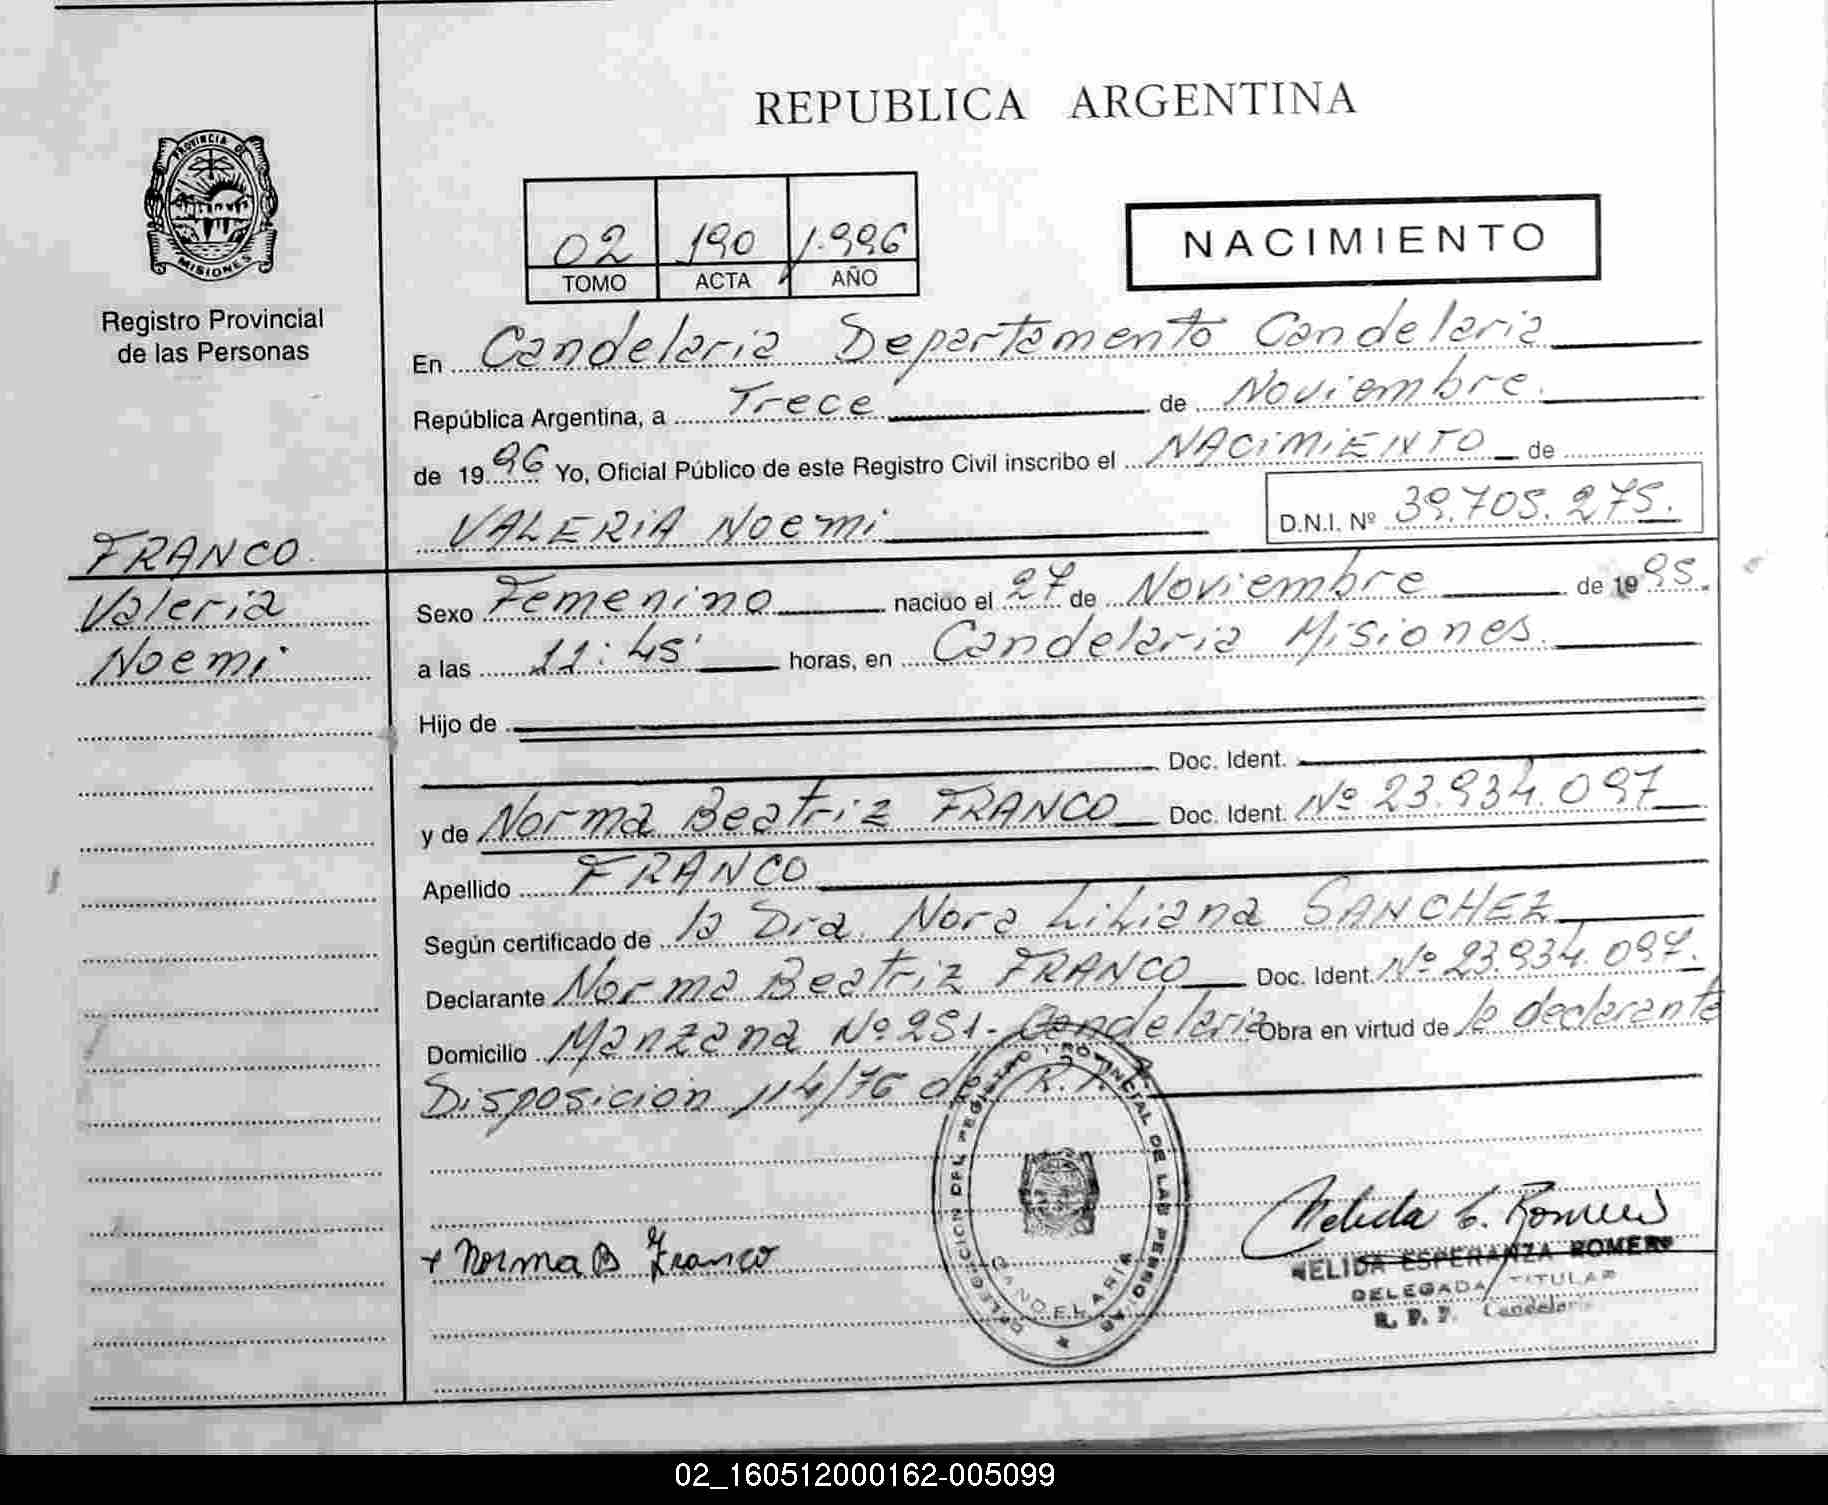 REPUBLICA ARGENTINA
PROVINCIA DE
MISIONES
Registro Provincial
de las Personas
02 190 1.996
TOMO ACTA AÑO
NACIMIENTO
En Candelaria Departamento Candelaria
República Argentina, a Trece de Noviembre.
de 1996 Yo, Oficial Público de este Registro Civil inscribo el NACIMIENTO de
VALERIA NOEMI D.N.I. Nº 39.705.275.
FRANCO.
Valeria
Noemi
Sexo Femenino nacido el 27 de Noviembre de 1995.
a las 11:45' horas, en Candelaria Misiones.
Hijo de
Doc. Ident.
y de Norma Beatriz FRANCO Doc. Ident. Nº 23.934.097
Apellido FRANCO
Según certificado de la Dra. Nora Liliana SANCHEZ
Declarante Norma Beatriz FRANCO Doc. Ident. Nº 23.934.097.
Domicilio Manzana Nº 251- Candelaria Obra en virtud de la declarante
Disposición 114/76 del R.P.
DELEGACION DEL REGISTRO PROVINCIAL DE LAS PERSONAS
CANDELARIA
+ Norma B Franco
Nelida E. Romero
NELIDA ESPERANZA ROMERO
DELEGADA TITULAR
R. P. P. Candelaria
02_160512000162-005099